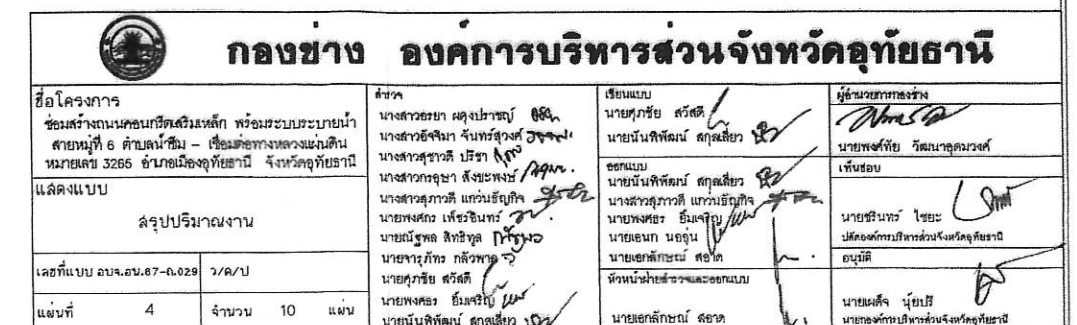 กองช่าง องค์การบริหารส่วนจังหวัดอุทัยธานี
ชื่อโครงการ
ซ่อมสร้างถนนคอนกรีตเสริมเหล็ก พร้อมระบบระบายน้ำ
สายหมู่ที่ 6 ตำบลน้ำซึม - เชื่อมต่อทางหลวงแผ่นดิน
หมายเลข 3265 อำเภอเมืองอุทัยธานี จังหวัดอุทัยธานี
แสดงแบบ
สรุปปริมาณงาน
เลขที่แบบ อบจ.อน.67-ถ.029
ว/ด/ป
แผ่นที่ 4
จำนวน 10 แผ่น
สำรวจ
นางสาวอรยา ผดุงปราชญ์
นางสาวอัจจิมา จันทร์สุวงศ์
นางสาวสุชาวดี ปรีชา
นางสาวกรอุษา สังขะพงษ์
นางสาวสุภาวดี แก่วนธัญกิจ
นายพงศกร เพ็ชรอินทร์
นายณัฐพล สิทธิทูล
นายจารุภัทร กลัวพาล
นายศุภชัย สวัสดี
นายพงศธร ยิ้มเจริญ
นายนันพิพัฒน์ สกุลเสี่ยว
เขียนแบบ
นายศุภชัย สวัสดี
นายนันพิพัฒน์ สกุลเสี่ยว
ออกแบบ
นายนันพิพัฒน์ สกุลเสี่ยว
นางสาวสุภาวดี แก่วนธัญกิจ
นายพงศธร ยิ้มเจริญ
นายเอนก นออุ่น
นายเอกลักษณ์ สอาด
หัวหน้าฝ่ายสำรวจและออกแบบ
นายเอกลักษณ์ สอาด
ผู้อำนวยการกองช่าง
นายพงศ์ทัย วัฒนาอุดมวงศ์
เห็นชอบ
นายชรินทร์ ไชยะ
ปลัดองค์การบริหารส่วนจังหวัดอุทัยธานี
อนุมัติ
นายเผด็จ นุ้ยปรี
นายกองค์การบริหารส่วนจังหวัดอุทัยธานี